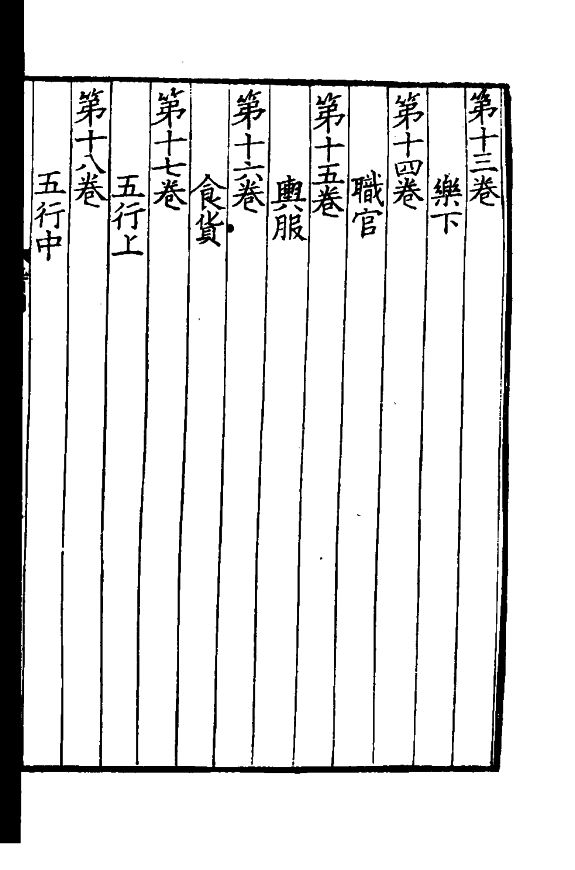 第十三卷
樂下
第十四卷
職官
第十五卷
輿服
第十六卷
食貨
第十七卷
五行上
第十八卷
五行中